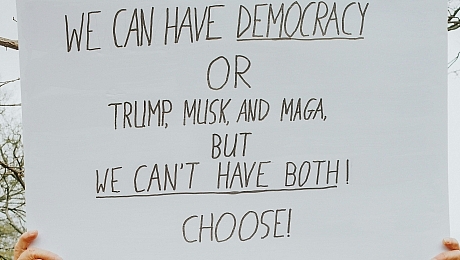 WE CAN HAVE DEMOCRACY
OR
TRUMP, MUSK, AND MAGA,
BUT
WE CAN'T HAVE BOTH!
CHOOSE!